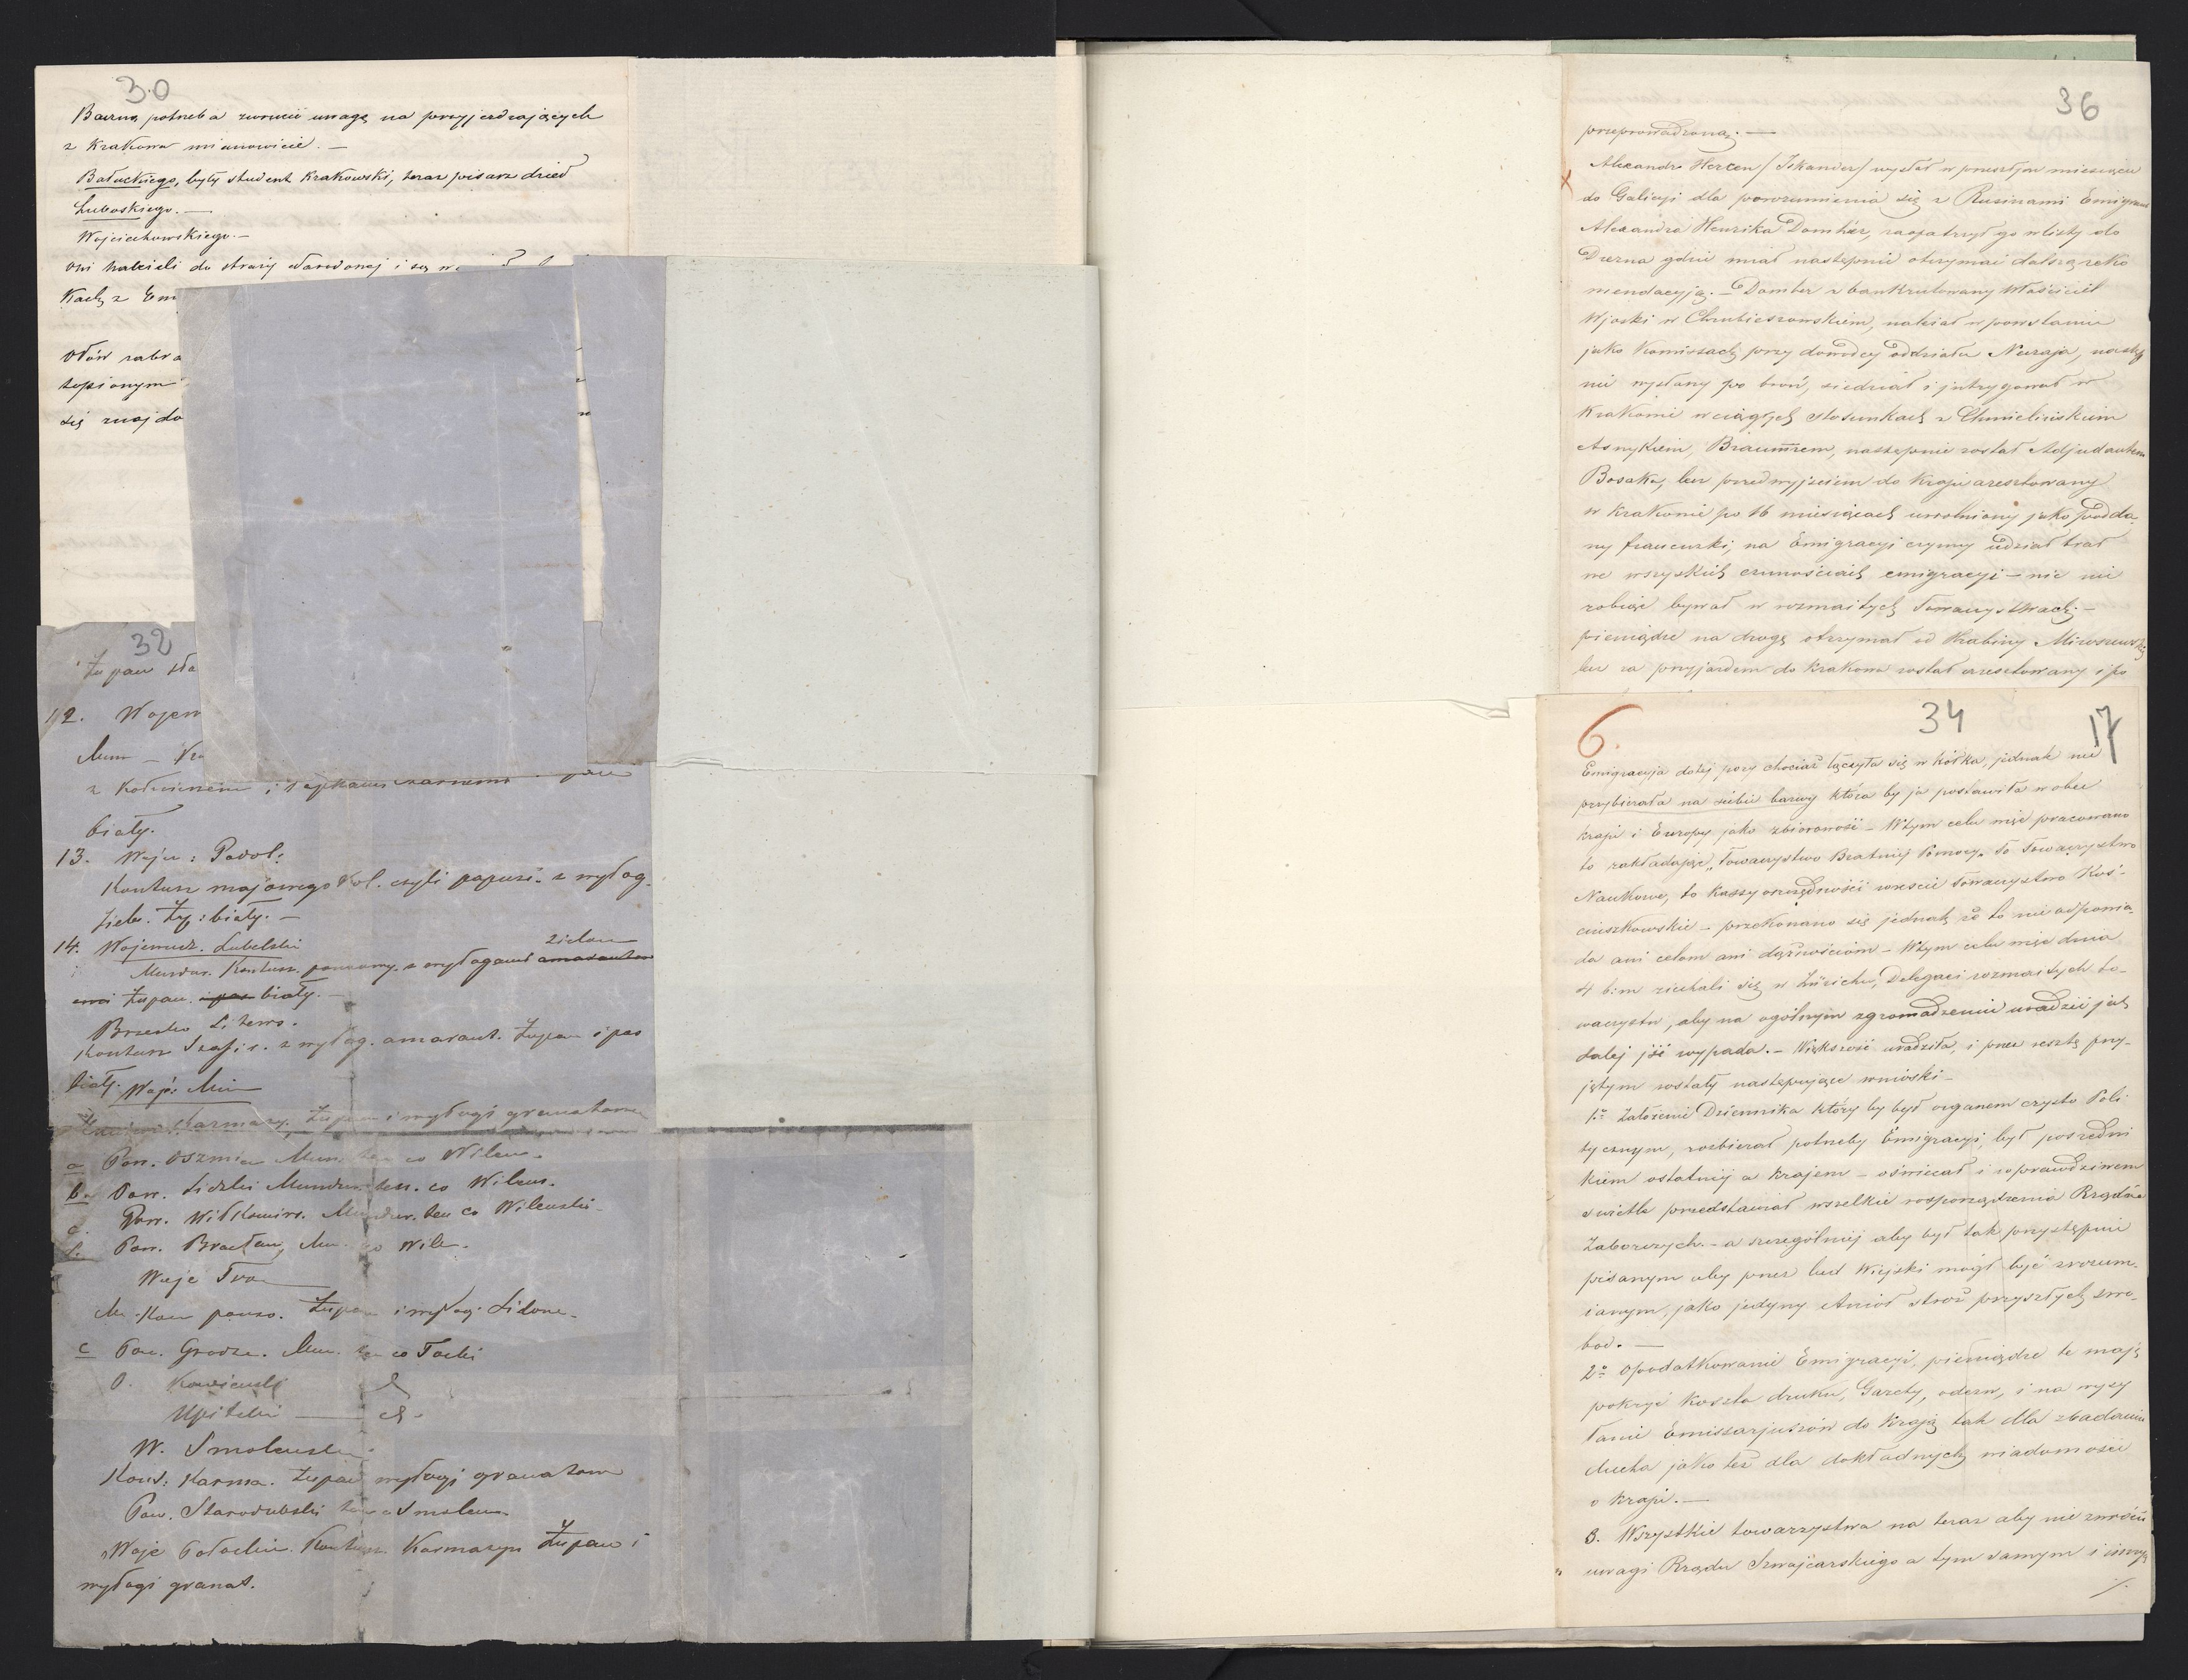 30
Baczną potrzeba zwrucić uwagę na przyjezdzających
z Krakowa mianowicie. —
Bałuckiego, były student Krakowski, teraz pisarz dzieł
Luboskiego. —
Wojciechowskiego. —
oni należeli do straży Narodowej i są w
Kach z Em
Ołów zabra
topionym
się znajdo
32
Żupan
12. Wojew
Mun — 
z Kołnierzem i czarnemi
biały.
13. Wojew: Podol:
Kontusz majowego Kol. czyli papuzi. z wyłog.
ziel. Żup: biały. —
14. Wojewudz. Lubelski
zielon
Mundur. Kontusz. ponsowy. z wyłogami amarantow
emi Żupan. i pas biały. —
Brzesko Litews.
Kontusz Szafir. z wyłog. amarant. Żupan i pas
biały. Woje: Min
Karmazy. Żupan i wyłogi granatowe
a Pow. Oszmia Mun. ten co Wilen.
b. Pow. Lidzki Mundur. ten. co Wilens.
c. Pow. Wiłkomirs. Mundur. ten co Wilenski
d. Pow. Bracław, Mu. co Wile.
Woje Tro
Mu. Kon ponso. Żupan i wyłogi Zielone.
c Pow. Grodze. Mun. ten co Trocki
d. Kowieński
Upitski —
W. Smolensk
Kont: Karma. Żupan wyłogi granatow
Pow. Starodubski ten co Smolens.
Woje Połockie. Kontusz. Karmazyn Żupan i
wyłogi granat.
36
przeprowadzoną. —
x Alexandr Hercen / Iskander / wysłał w przeszłym miesiącu
do Galicyi dla porozumienia się z Rusinami Emigran
Alexandra Henrika Domber, zaopatrzył go w listy do
Drezna gdzie miał następnie otrzymać dalszą reko
mendacyją. — Domber zbankrutowany właściciel
Wjoski w Chrubieszowskiem, należał w powstaniu
jako Komissarz przy dowodcy oddziału Nuraja, następ
nie wysłany po broń, siedział i jntrygował w
Krakowie w ciągłych stosunkach z Chmielińskim
Asnykiem, Braumrem, następnie został Adjudantem
Bosaka, lecz przed wyjściem do Kraju aresztowany
w Krakowie po 16 miesiącach uwolniony jako podda-
ny francuzki, na Emigracyi czynny udział brał
we wszystkich czunnościach emigracyi — nic nie
robiąc bywał w rozmaitych Towarzystwach. —
pieniądze na drogę otrzymał od Hrabiny Miroszewski
lecz za przyjazdem do Krakowa został aresztowany i po
6. 34 17
Emigracyja dotej pory chociaż łączyła się w kółka, jednak nie
przybierała na siebie barwy która by ją postawiła wobec
kraju i Europy jako zbiorowość — Wtym celu więc pracowano
to zakładając „Towarzystwo Bratniej Pomocy„ To Towarzystwo
Naukowe, to kassy oszczędności wreście Towarzystwo Koś-
ciuszkowskie — przekonano się jednak że to nie odpowia-
da ani celom ani dążnościom — Wtym celu więc dnia
4 b:m ziechali się w Zürichu, Delegaci rozmaitych to-
warzystw, aby na ogólnym zgromadzeniu uradzić jak
dalej jść wypada. — Większość uradziła, i przez resztę prz-
jętym zostały następujące wnioski —
1o Założenie Dziennika który by był organem czysto Poli
tycznym, rozbierał potrzeby Emigracyi, był pośredni
kiem ostatniej a krajem — oświecał i w prawdziwem
świetle przedstawiał wszelkie rosporządzenia Rządów
Zaborczych. — a szczególniej aby był tak przystępnie
pisanym aby przez lud Wiejski mógł być zrozum-
ianym, jako jedyny Anioł stroż przyszłych swo-
bod. —
2o opodatkowanie Emigracyi, pieniądze te mają
pokryć koszta druku, Gazety, odezw, i na wysy
łanie Emissarjuszów do Kraju tak dla zbadania
ducha jako też dla dokładnych wiadomości
o kraju. —
3. Wszystkie towarzystwa na teraz aby nie zwrócić
uwagi Rządu Szwajcarskiego a tym samym i innych